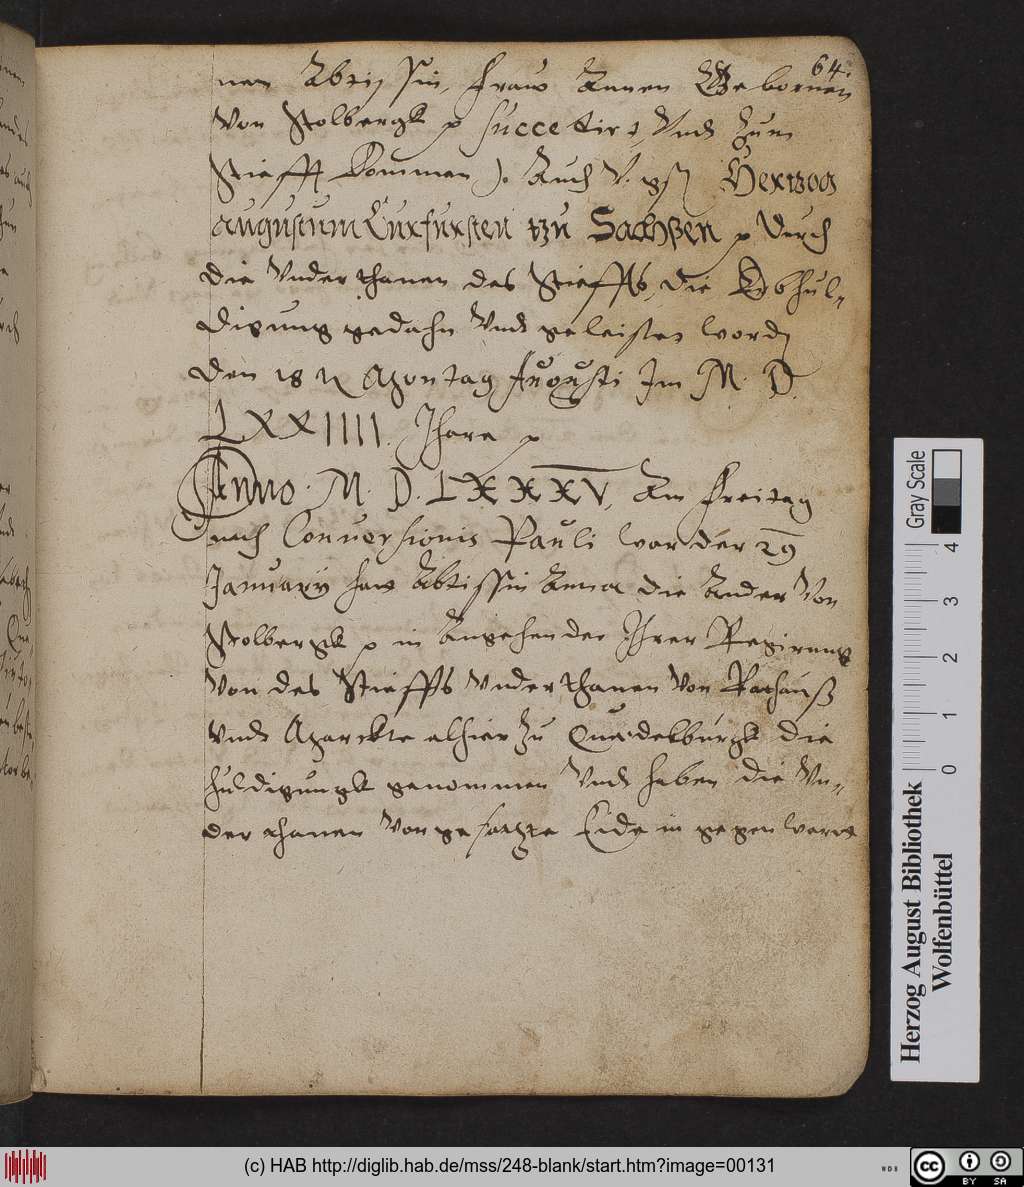 64.
nen Abtissin, Fraw Annen Gebornen
Von Stolbergk p succedirt, Vnd zum
Stiefft kommen). Auch V. gst Hertzog
augustum Curfursten tzu Sachssen p durch
die Vnderthanen des Stieffts, die Erbhul-
digung gedahn Vnd geleistet word
den 18 Montag Augusti Im M. D.
LXXIIII. Jhare p
Anno. M. D. LXXXV, Am Freitag
nach Conuersionis Pauli war der 29
January hat Abtissin Anna die Ander Von
Stolbergk p in Angehender Ihrer Regirung
Von des Stieffts Vnderthanen Von Rathauß
Vnd Marckte alhier zu Quedelburgk die
huldigungk genommen Vnd haben die Vn-
derthanen Vorgesatzte Eide in gegenwert
Gray Scale
0 1 2 3 4
Herzog August Bibliothek
Wolfenbüttel
(c) HAB http://diglib.hab.de/mss/248-blank/start.htm?image=00131
WDB
cc BY SA